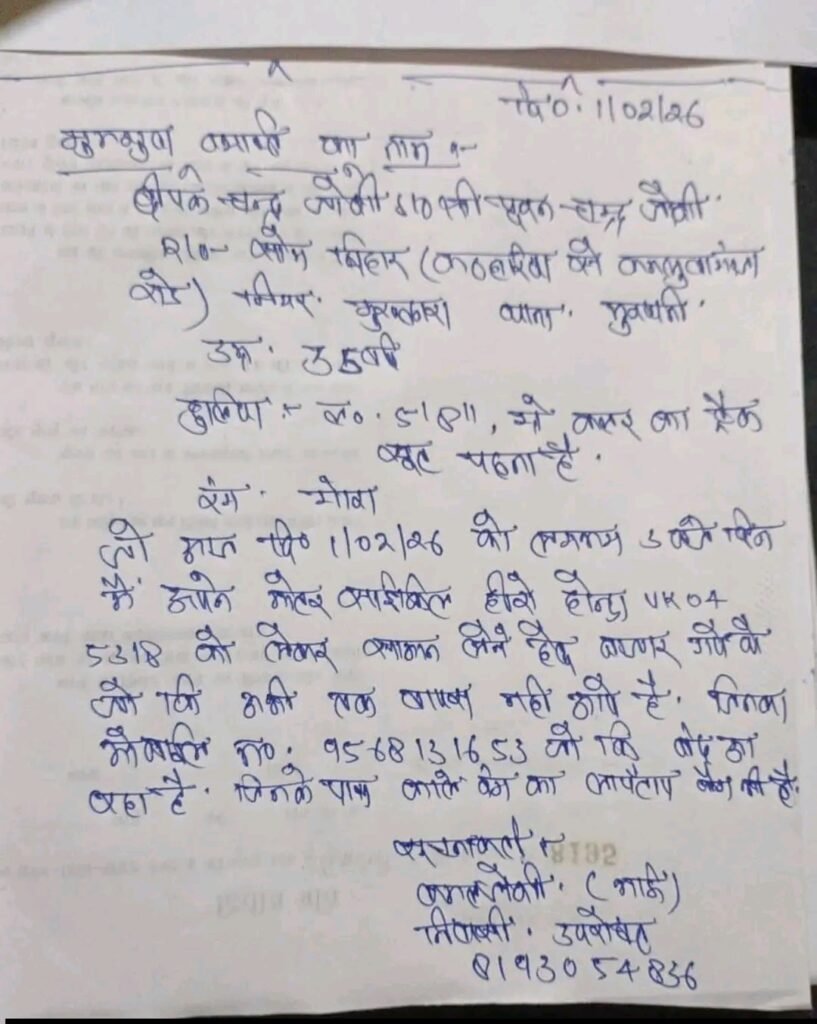 दि० 1/02/26
गुमशुदा का नाम :-
दीपक चन्द्र जोशी S/O श्री भुवन चन्द्र जोशी
R/o- विहार (कठघरिया से कमलुवागांजा
रोड) नियर थाना मुखानी
उम्र. 35 वर्ष
हुलिया :- ल०. 5'8", कलर का ट्रैक
सूट पहना है.
रंग. गोरा
जो आज दि० 1/02/26 को लगभग 3 बजे दिन
में अपने मोटर साईकिल हीरो होन्डा UK04
5318 को लेकर सामान लेने हेतु बाजार गये थे
जो कि अभी तक वापस नही आये है. जिनका
मोबाईल न०. 9568131653 जो कि बंद आ
रहा है. जिनके पास काले रंग का लापैताप बैग भी है.
सूचनाकर्ता
कमल जोशी. (भाई)
निवासी. उपरोक्त
8193054836